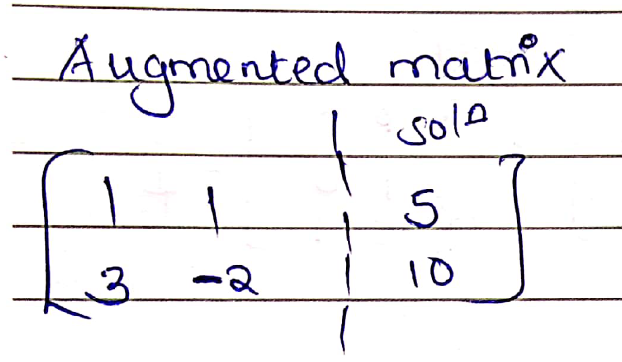 Augmented matrix
solⁿ
1 1 5
3 -2 10